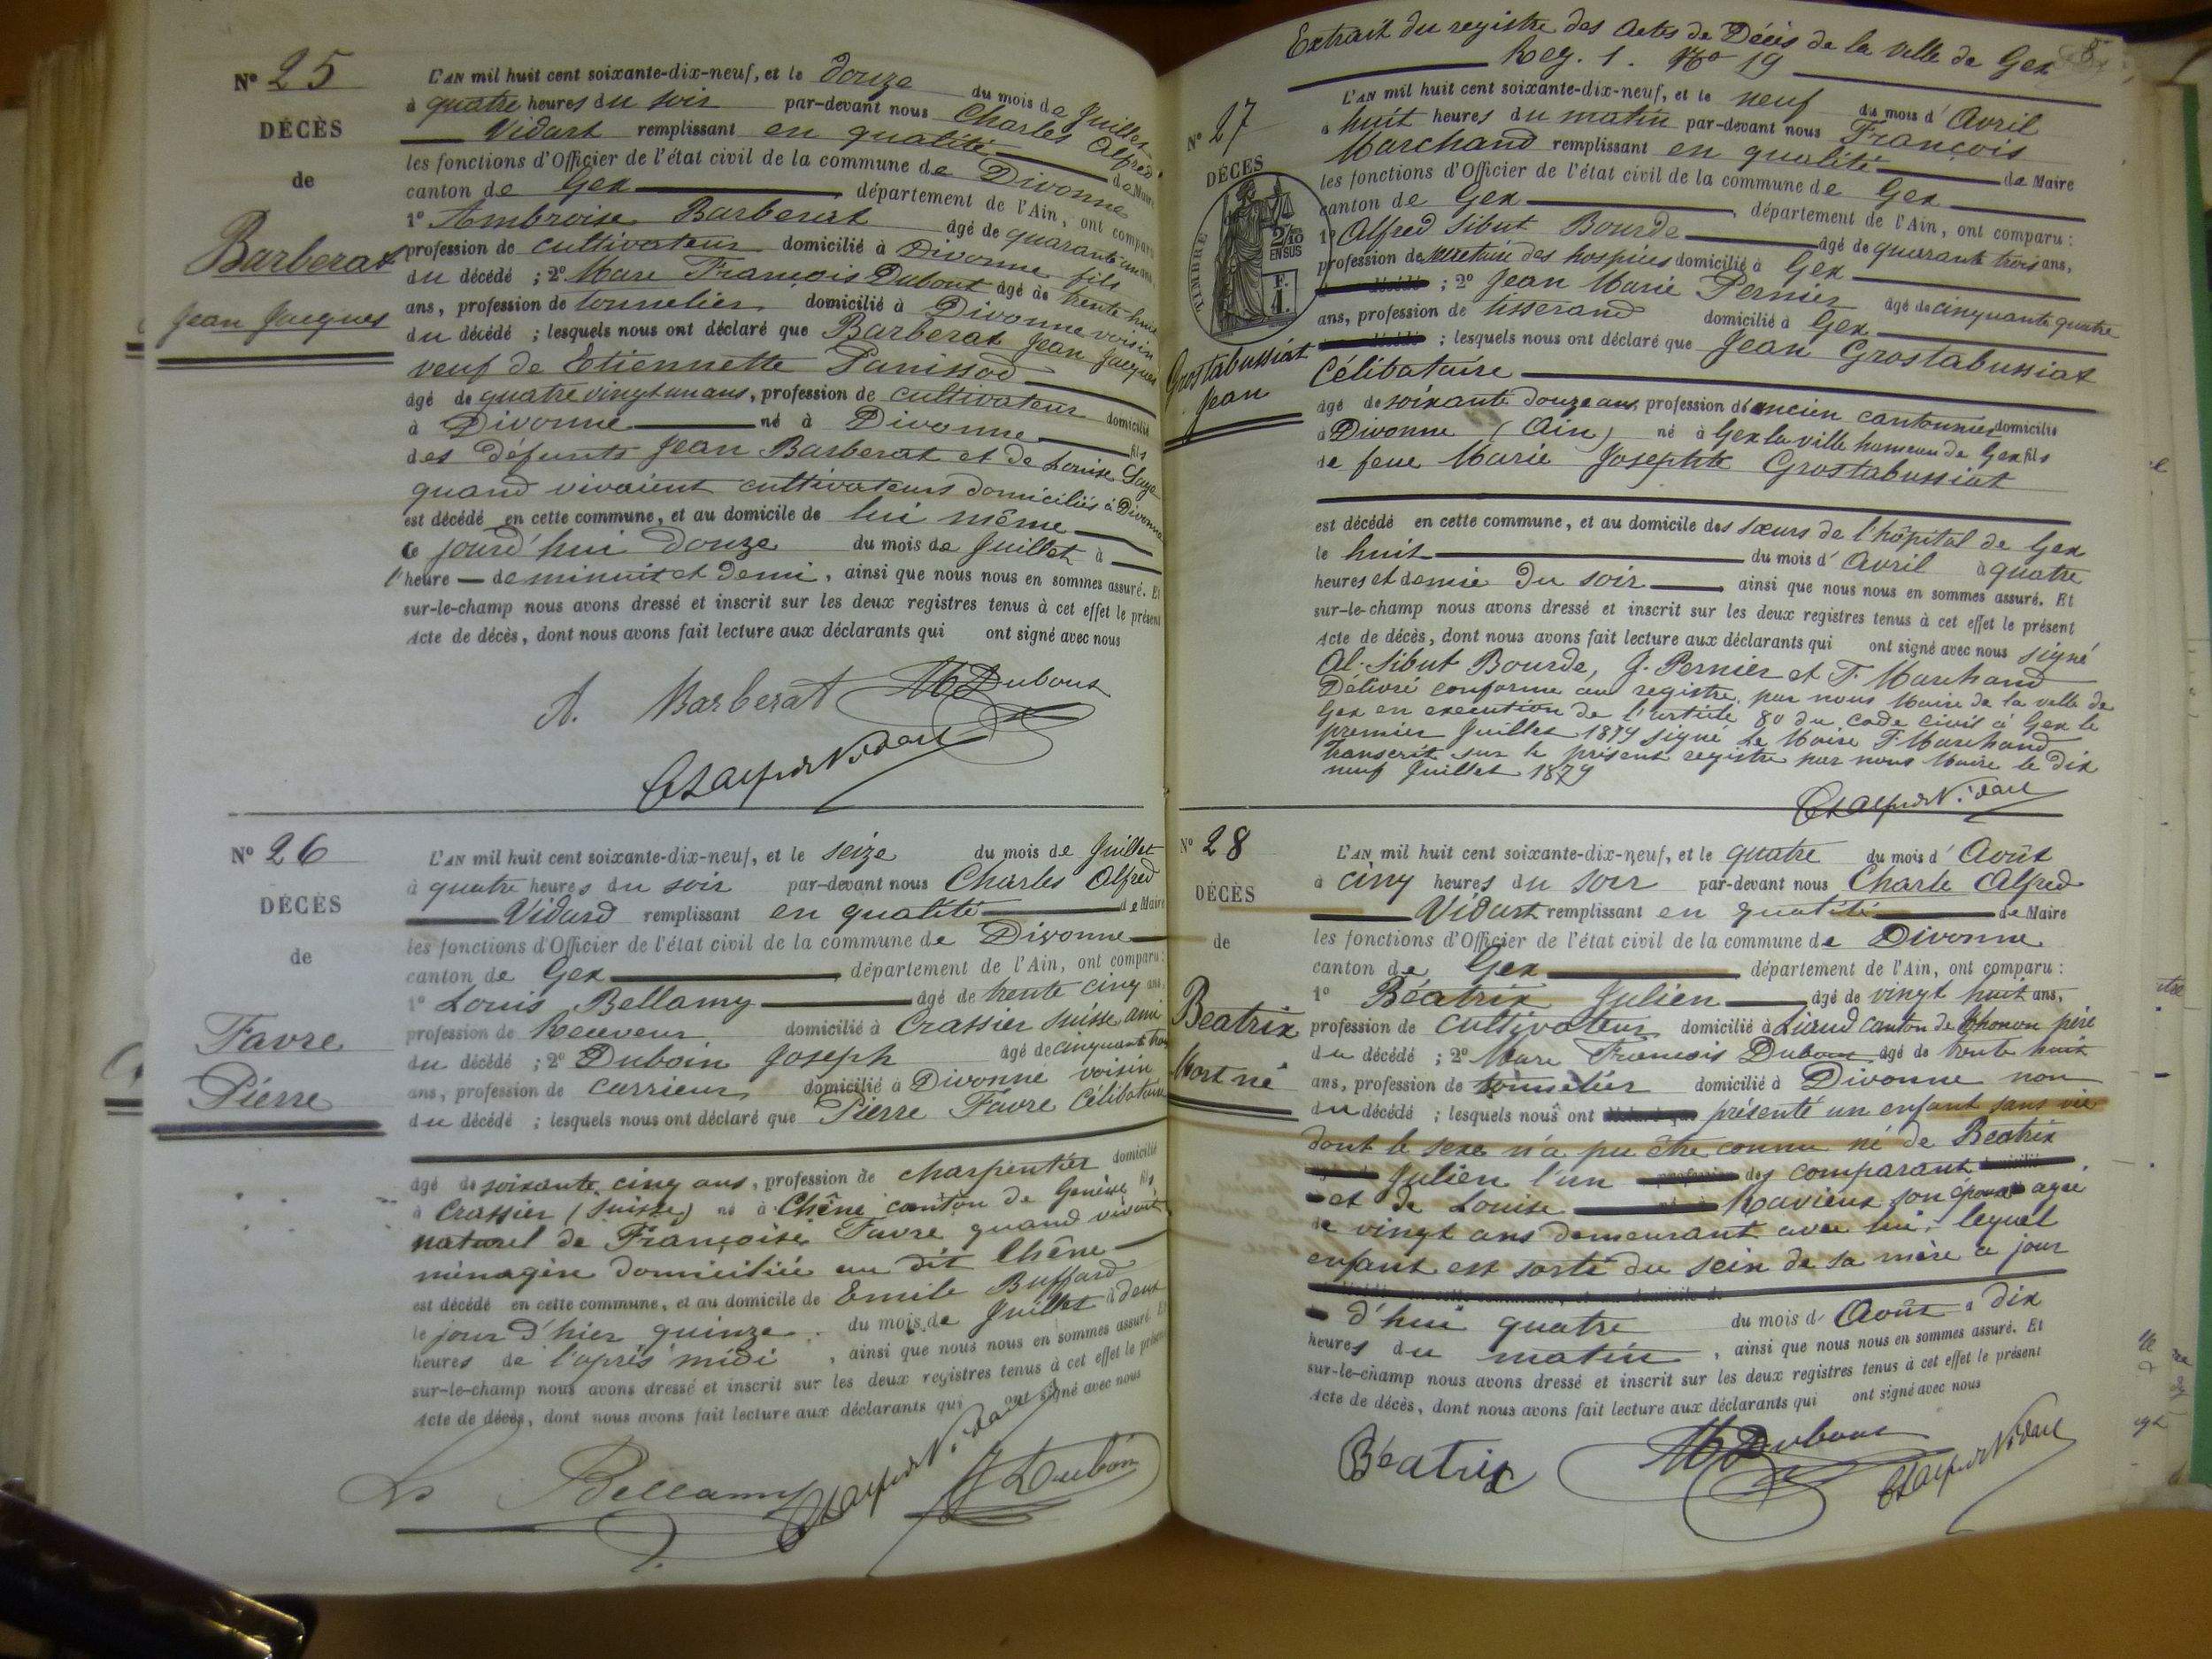 Nº 25
DÉCÈS
de
Barberat
Jean Jacques
L'AN mil huit cent soixante-dix-neuf, et le douze du mois de Juillet
à quatre heures du soir par-devant nous Charles Alfred
Vidart remplissant en qualité de Maire
les fonctions d'Officier de l'état civil de la commune de Divonne
canton de Gex département de l'Ain, ont comparu
1º Ambroise Barberat âgé de quarante un ans,
profession de cultivateur domicilié à Divonne fils
du décédé ; 2º Marc François Dubout âgé de trente-huit
ans, profession de tonnelier domicilié à Divonne voisin
du décédé ; lesquels nous ont déclaré que Barberat Jean Jacques
veuf de Etiennette Panissod
âgé de quatre vingt un ans, profession de cultivateur domicilié
à Divonne né à Divonne fils
des défunts Jean Barberat et de Louise
quand vivaient cultivateurs domiciliés à Divonne
est décédé en cette commune, et au domicile de lui même
ce jourd'hui douze du mois de Juillet à
l'heure de minuit et demi, ainsi que nous nous en sommes assuré. Et
sur-le-champ nous avons dressé et inscrit sur les deux registres tenus à cet effet le présent
Acte de décès, dont nous avons fait lecture aux déclarants qui ont signé avec nous
A. Barberat MF Dubout
Ch Alfred Vidart
Nº 26
DÉCÈS
de
Favre
Pierre
L'AN mil huit cent soixante-dix-neuf, et le seize du mois de Juillet
à quatre heures du soir par-devant nous Charles Alfred
Vidard remplissant en qualité de Maire
les fonctions d'Officier de l'état civil de la commune de Divonne
canton de Gex département de l'Ain, ont comparu :
1º Louis Bellamy âgé de trente cinq ans,
profession de Receveur domicilié à Crassier Suisse ami
du décédé ; 2º Duboin Joseph âgé de cinquante trois
ans, profession de carrieur domicilié à Divonne voisin
du décédé ; lesquels nous ont déclaré que Pierre Favre Célibataire
âgé de soixante cinq ans, profession de charpentier domicilié
à Crassier (Suisse) né à Chêne canton de Genève fils
naturel de Françoise Favre quand vivait
ménagère domiciliée au dit Chêne
est décédé en cette commune, et au domicile de Emile Buffard
le jour d'hier quinze du mois de Juillet à deux
heures de l'après midi, ainsi que nous nous en sommes assuré. Et
sur-le-champ nous avons dressé et inscrit sur les deux registres tenus à cet effet le présent
Acte de décès, dont nous avons fait lecture aux déclarants qui ont signé avec nous
Ls Bellamy Ch Alfred Vidart J Duboin
Extrait du registre des Actes de Décès de la ville de Gex
Reg. 1. Nº 19
Nº 27
DÉCÈS
TIMBRE
2/10 EN SUS
F. 1.
Grostabussiat
Jean
L'AN mil huit cent soixante-dix-neuf, et le neuf du mois d'Avril
à huit heures du matin par-devant nous François
Marchand remplissant en qualité de Maire
les fonctions d'Officier de l'état civil de la commune de Gex
canton de Gex, département de l'Ain, ont comparu :
1º Alfred Sibut Bourde âgé de quarante trois ans,
profession de secrétaire des hospices domicilié à Gex
; 2º Jean Marie Pernier âgé de cinquante quatre
ans, profession de tisserand domicilié à Gex
; lesquels nous ont déclaré que Jean Grostabussiat
Célibataire
âgé de soixante douze ans, profession d'ancien cantonnier domicilié
à Divonne (Ain) né à Gex la ville hameau de Gex fils
de feue Marie Josephte Grostabussiat
est décédé en cette commune, et au domicile des sœurs de l'hôpital de Gex
le huit du mois d'Avril à quatre
heures et demie du soir, ainsi que nous nous en sommes assuré. Et
sur-le-champ nous avons dressé et inscrit sur les deux registres tenus à cet effet le présent
Acte de décès, dont nous avons fait lecture aux déclarants qui ont signé avec nous signé
Al. Sibut Bourde, J. Pernier et F. Marchand
Délivré conforme au registre par nous Maire de la ville de
Gex en execution de l'article 80 du Code civil à Gex le
premier Juillet 1879 signé Le Maire F. Marchand
Transcrit sur le présent registre par nous Maire le dix
neuf Juillet 1879
Ch Alfred Vidart
Nº 28
DÉCÈS
de
Beatrix
Mort né
L'AN mil huit cent soixante-dix-neuf, et le quatre du mois d'Août
à cinq heures du soir par-devant nous Charle Alfred
Vidart remplissant en qualité de Maire
les fonctions d'Officier de l'état civil de la commune de Divonne
canton de Gex département de l'Ain, ont comparu :
1º Béatrix Julien âgé de vingt huit ans,
profession de cultivateur domicilié à canton de Thonon père
du décédé ; 2º Marc François Dubout âgé de trente huit
ans, profession de tonnelier domicilié à Divonne non
du décédé ; lesquels nous ont présenté un enfant sans vie
dont le sexe n'a pu être connu né de Beatrix
Julien l'un des comparant
et de Louise son épouse agée
de vingt ans demeurant avec lui, lequel
enfant est sorti du sein de sa mère ce jour
d'hui quatre du mois d'Août à dix
heures du matin, ainsi que nous nous en sommes assuré. Et
sur-le-champ nous avons dressé et inscrit sur les deux registres tenus à cet effet le présent
Acte de décès, dont nous avons fait lecture aux déclarants qui ont signé avec nous
Béatrix MF Dubout Ch Alfred Vidart